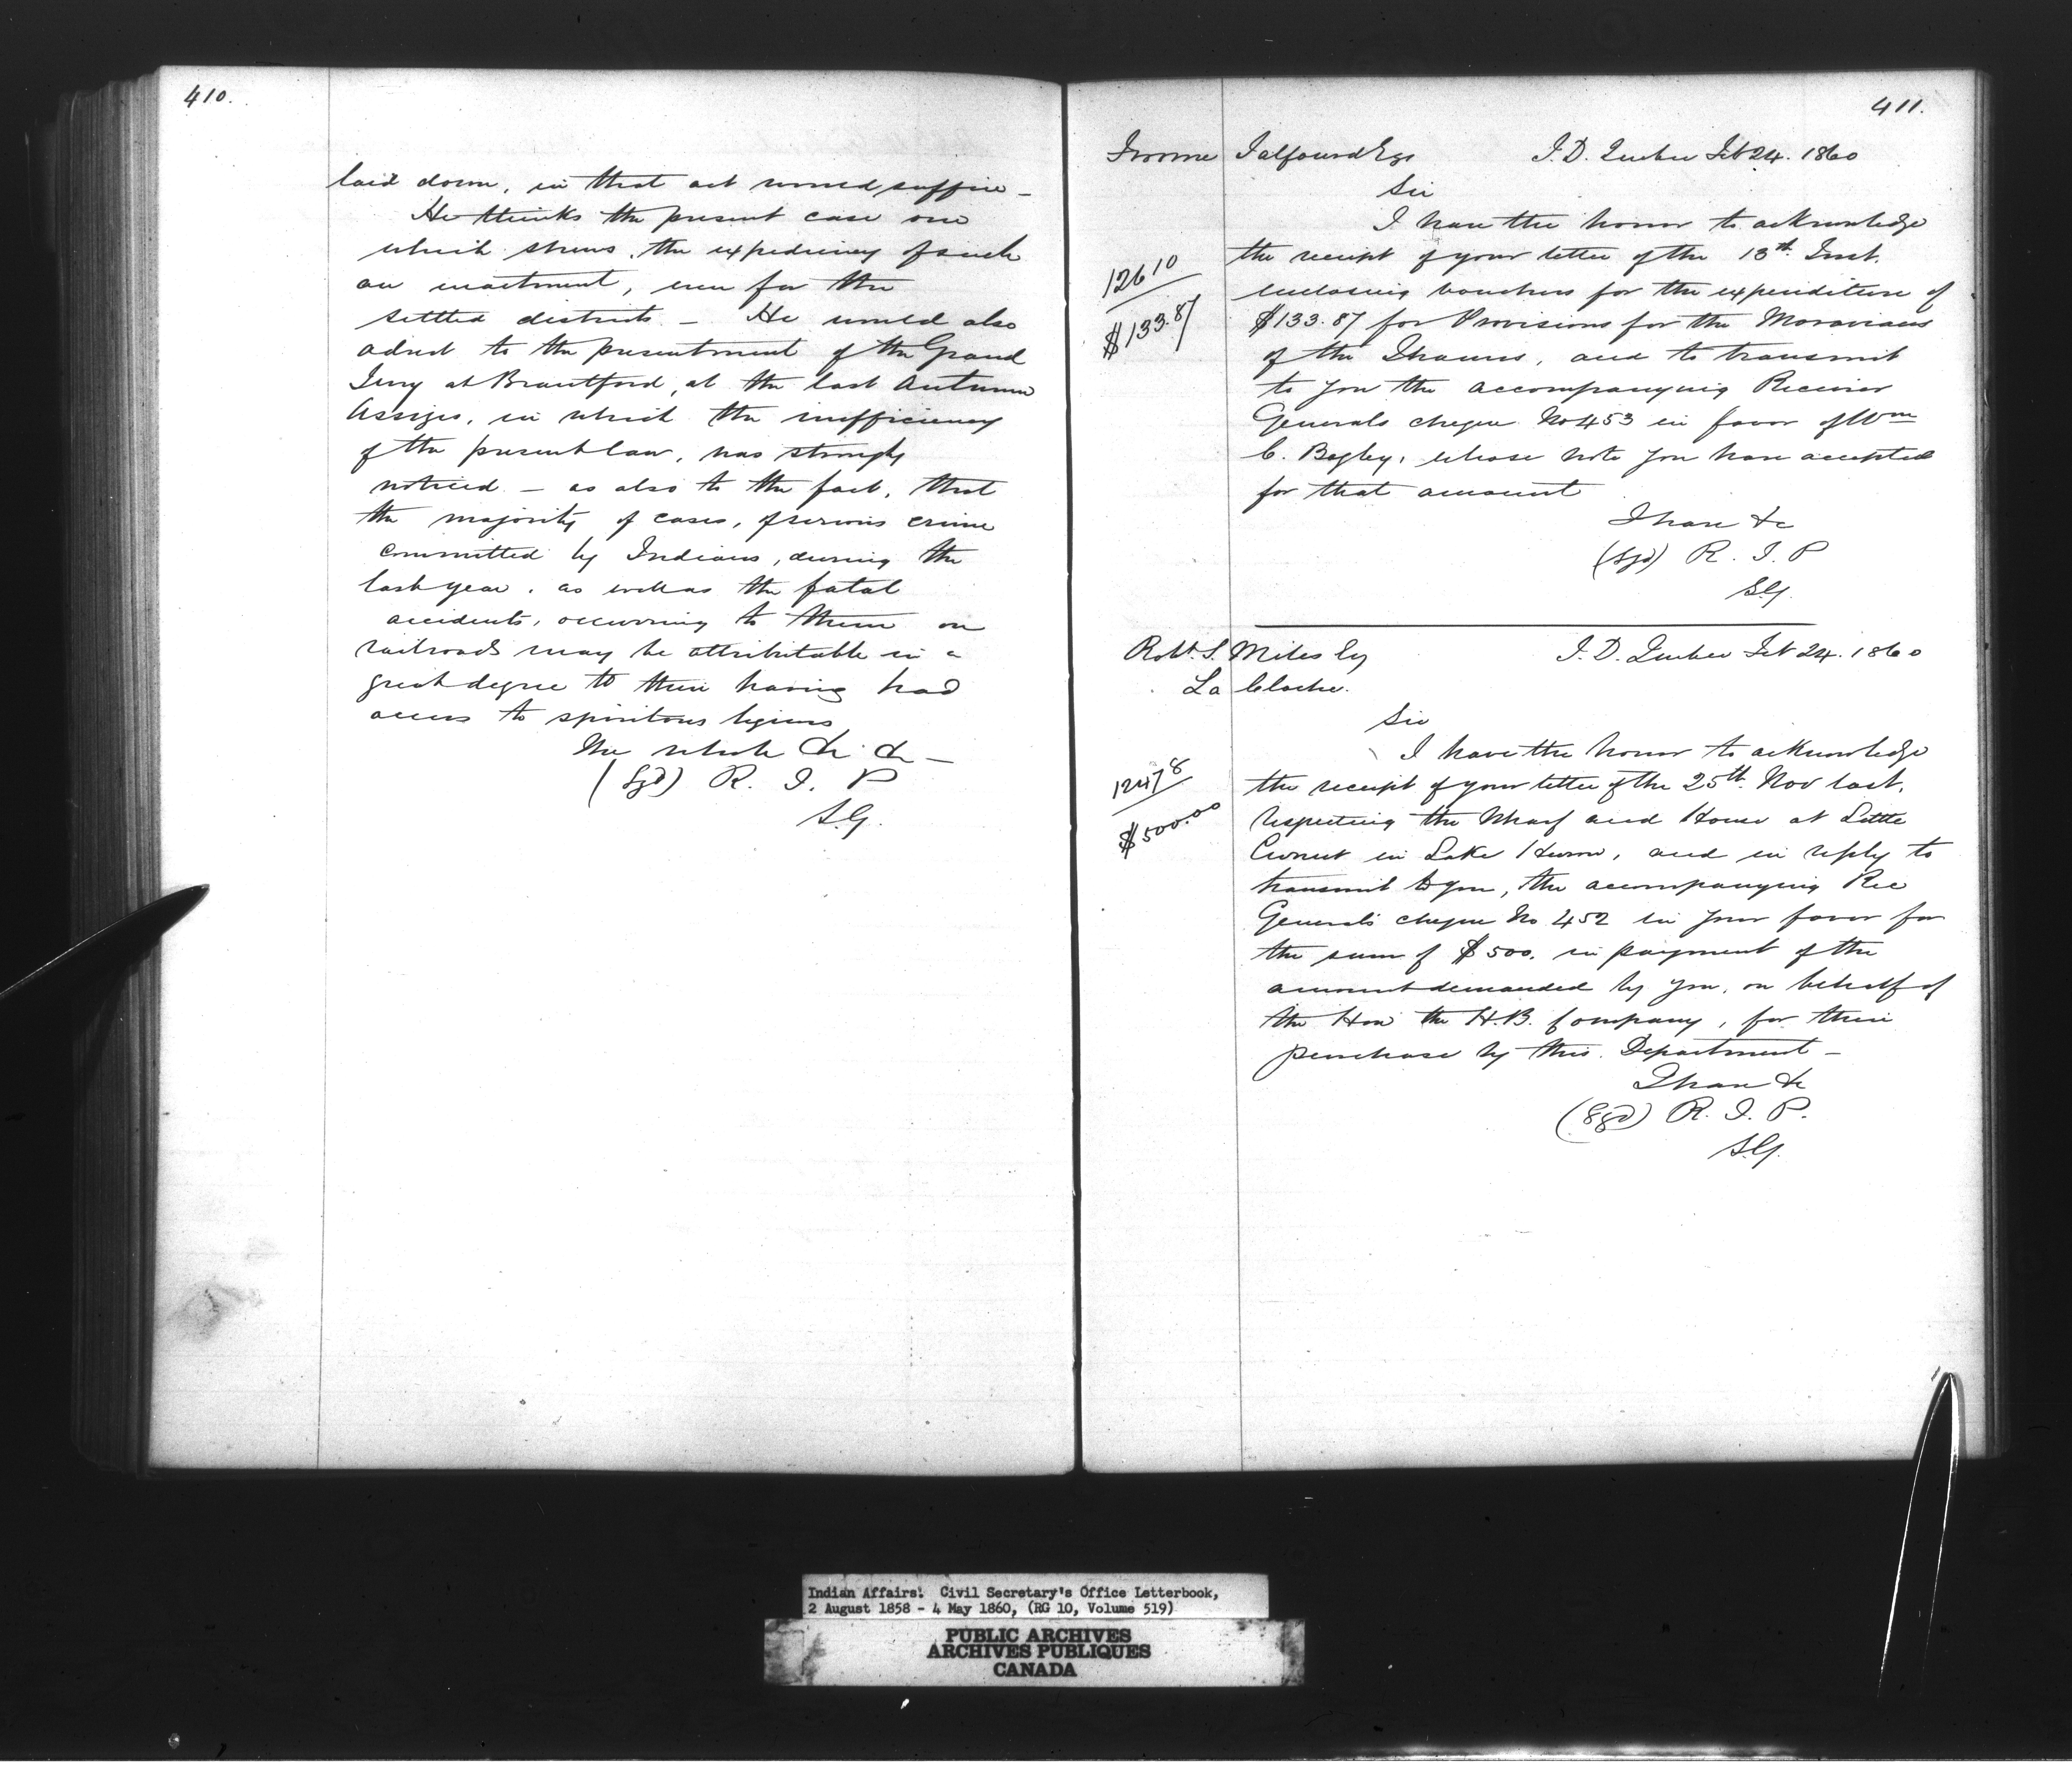 410.
laid down, in that act would suffice –
He thinks the present case one
which shews, the expediency of such
an enactment, even for the
settled districts – He would also
advert to the presentment of the Grand
Jury at Brantford, at the last Autumn
Assizes, in which the inefficiency
of the present law, was strongly
noticed – as also to the fact, that
the majority of cases, of serious crime
committed by Indians, during the
last year, as well as the fatal
accidents, occurring to them on
railroads may be attributable in a
great degree to their having had
access to spiritous liquors
The whole &c &c –
(Sgd) R. T. P
S.G.
411.
Froome Talfourd Esq I.D. Quebec Feb 24. 1860
Sir
I have the honor to acknowledge
the receipt of your letter of the 13th. Inst.
enclosing vouchers for the expenditure of
$133.87 for Provisions for the Moravians
of the Thames, and to transmit
to you the accompanying Receiver
Generals cheque No 453 in favor of Wm
C. Bagley, whose note you have accepted
for that amount
I have &c
(Sgd) R. T. P
S.G.
12610
$133.87
Robt. S. Miles Esq I.D. Quebec Feb 24. 1860
La Cloche.
Sir
I have the honor to acknowledge
the receipt of your letter of the 25th. Nov last,
respecting the Wharf and House at Little
Current in Lake Huron, and in reply to
transmit to you, the accompanying Rec
General's cheque No 452 in your favor for
the sum of $500. in payment of the
amount demanded by you, on behalf of
the Hon the H.B. Company, for their
purchase by this Department –
I have &c
(Sgd) R. T. P.
S.G.
12478
$500.00
Indian Affairs. Civil Secretary's Office Letterbook,
2 August 1858 - 4 May 1860, (RG 10, Volume 519)
PUBLIC ARCHIVES
ARCHIVES PUBLIQUES
CANADA